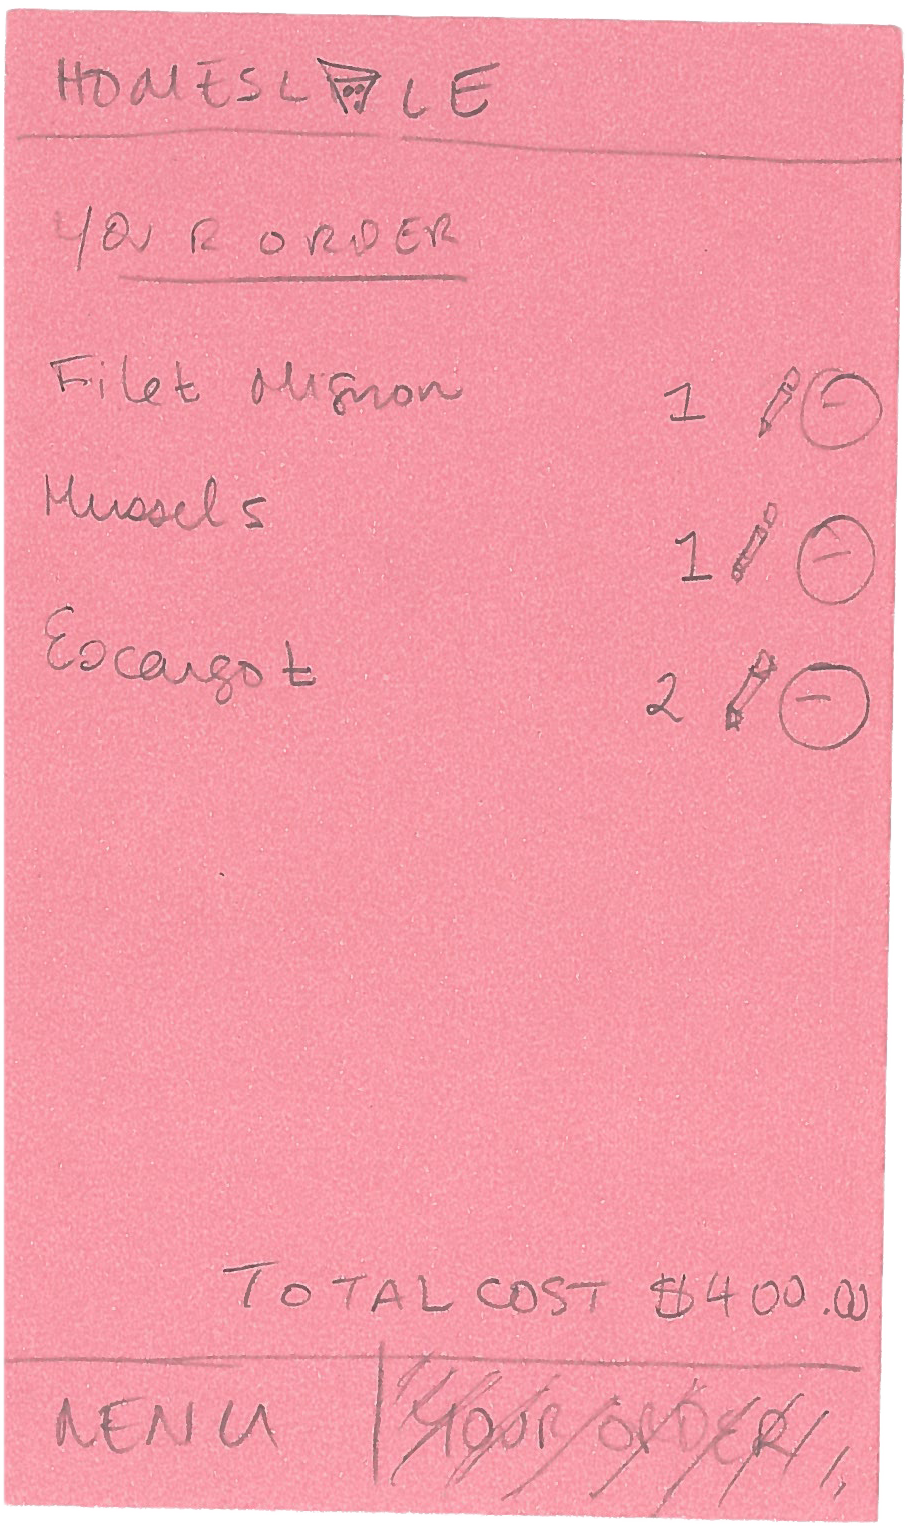 HOMESLICE
YOUR ORDER
Filet Mignon 1
Mussels 1
Escargot 2
TOTAL COST $400.00
MENU YOUR ORDER